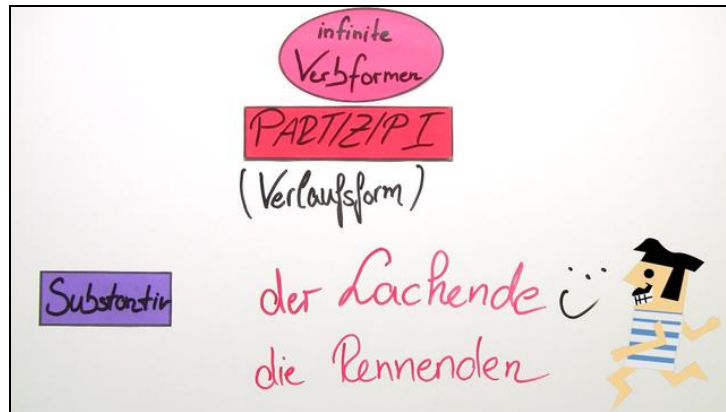 infinite
Verbformen
PARTIZIP I
(Verlaufsform)
Substantiv
der Lachende
die Rennenden